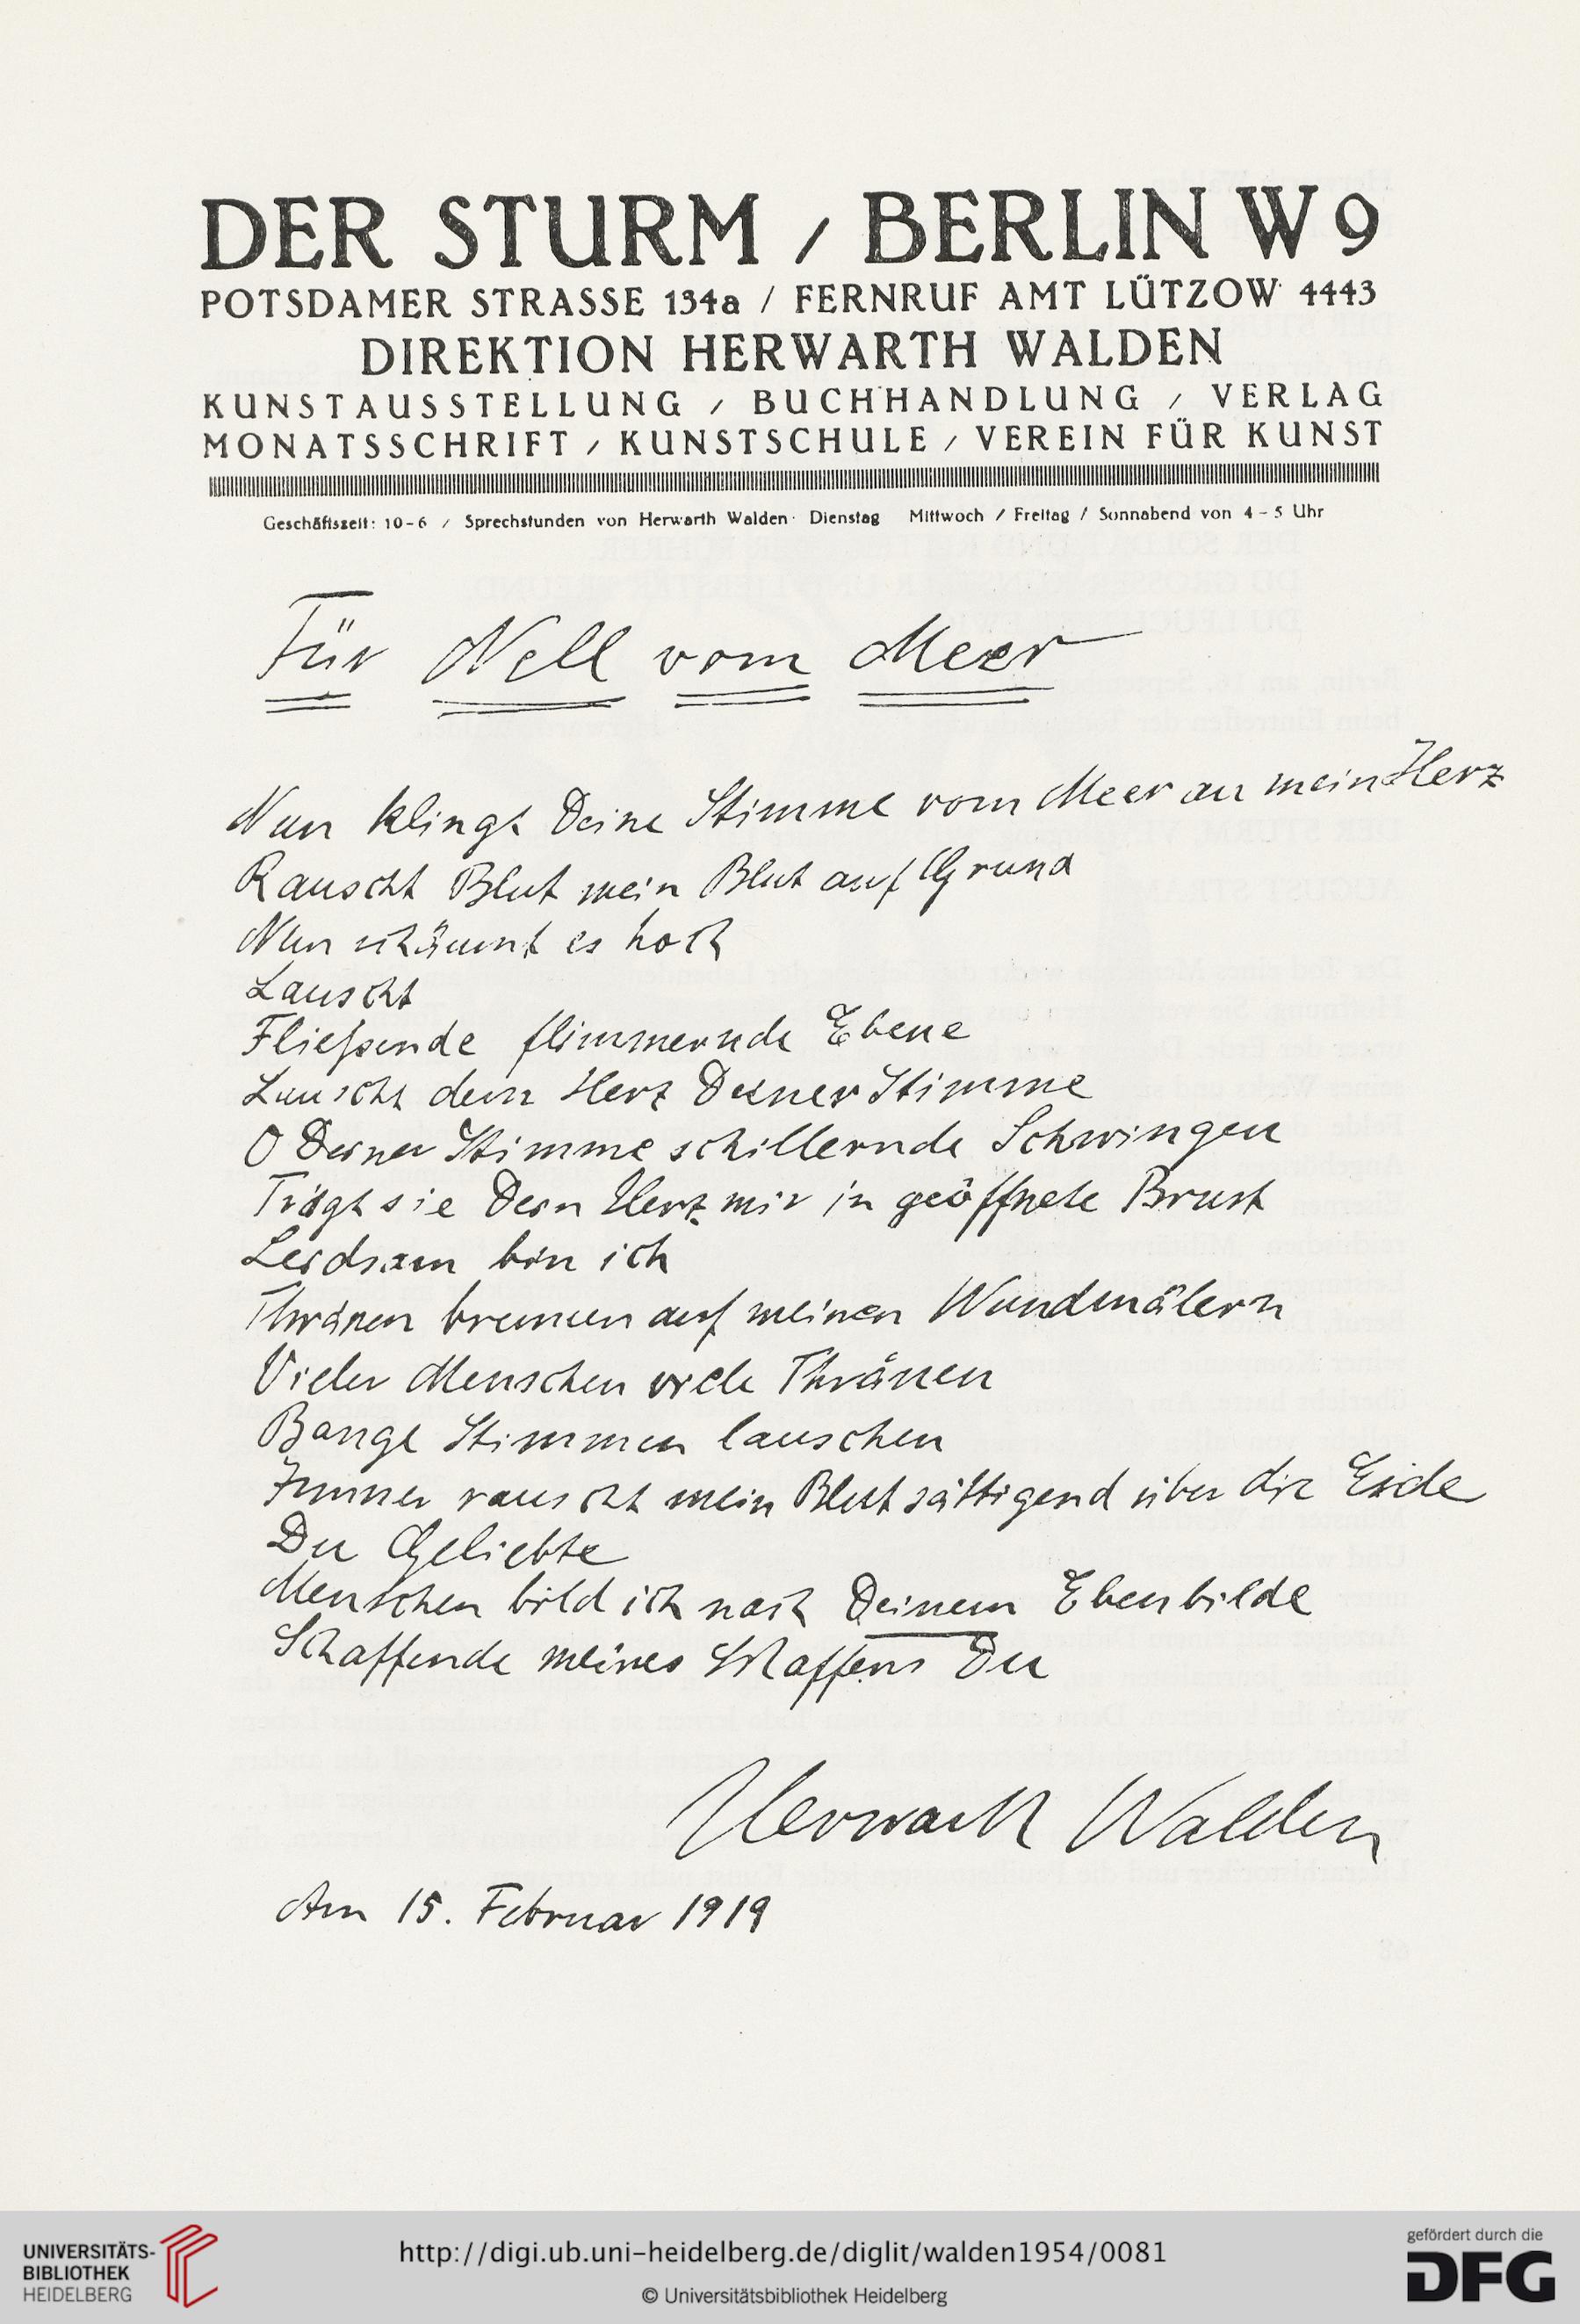 DER STURM / BERLIN W 9
POTSDAMER STRASSE 134a / FERNRUF AMT LÜTZOW 4443
DIREKTION HERWARTH WALDEN
KUNSTAUSSTELLUNG / BUCHHANDLUNG / VERLAG
MONATSSCHRIFT / KUNSTSCHULE / VEREIN FÜR KUNST
Geschäftszeit: 10-6 / Sprechstunden von Herwarth Walden Dienstag Mittwoch / Freitag / Sonnabend von 4-5 Uhr
Für Nell vom Meer
Nun klingt Deine Stimme vom Meer an mein Herz
Rauscht Blut mein Blut auf Grund
Nun schäumt es hoch
Lauscht
Fließende flimmernde Ebene
Lauscht dem Herz Deiner Stimme
O Deiner Stimme schillernde Schwingen
Trägt sie Dein Herz mir in geöffnete Brust
Leidsam bin ich
Thränen brennen auf meinen Wundmälern
Vieler Menschen viele Thränen
Bange Stimmen lauschen
Immer rauscht mein Blut sättigend über die Erde
Du Geliebte
Menschen bild ich nach Deinem Ebenbilde
Schaffende meines Schaffens Du
Herwarth Walden
Am 15. Februar 1919
UNIVERSITÄTS-
BIBLIOTHEK
HEIDELBERG
http://digi.ub.uni-heidelberg.de/diglit/walden1954/0081
© Universitätsbibliothek Heidelberg
gefördert durch die
DFG